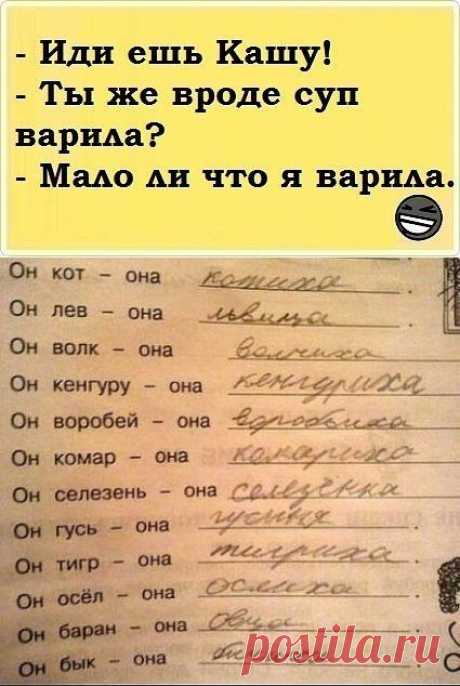 - Иди ешь Кашу!
- Ты же вроде суп
варила?
- Мало ли что я варила.
Он кот – она котиха.
Он лев – она львица.
Он волк – она волчиха
Он кенгуру – она кенгуриха
Он воробей – она воробьиха
Он комар – она комариха
Он селезень – она селезёнка
Он гусь – она гусиня
Он тигр – она тигриха.
Он осёл – она ослиха.
Он баран – она овца.
Он бык – она
postila.ru